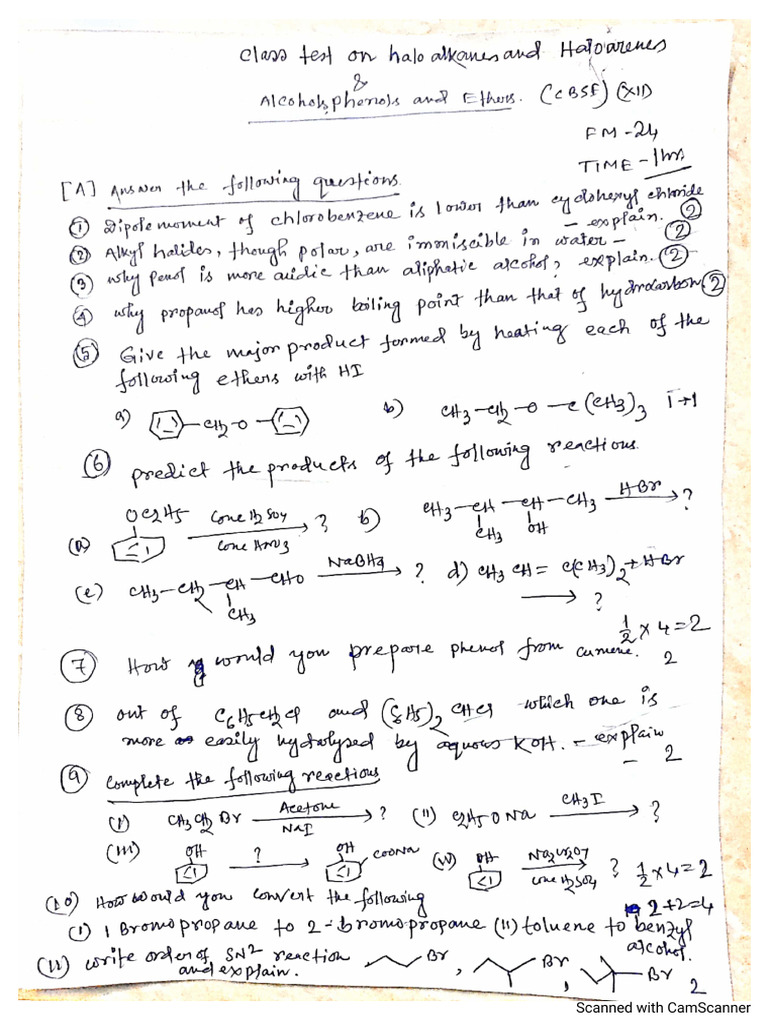 Class test on haloalkanes and Haloarenes
&
Alcohols, phenols and Ethers. (CBSE) (XII)
FM - 24
TIME - 1hrs
[A] Answer the following questions.
① Dipole moment of chlorobenzene is lower than cyclohexyl chloride - explain. ②
② Alkyl halides, though polar, are immiscible in water - ②
③ why penol is more acidic than aliphatic alcohol, explain. ②
④ why propanol has higher boiling point than that of hydrocarbon ②
⑤ Give the major product formed by heating each of the
following ethers with HI
a) -CH2-O- b) CH3-CH2-O-C(CH3)3 1+1
⑥ predict the products of the following reactions.
(a) OC2H5 Conc H2SO4 Conc HNO3 ? b) CH3-CH-CH-CH3 HBr ?
CH3 OH
(c) CH3-CH2-CH-CHO NaBH4 ? d) CH3CH=C(CH3)2+HBr
CH3 ?
1/2 x 4 = 2
⑦ How would you prepare phenol from cumene. 2
⑧ out of C6H5CH2Cl and (C6H5)2CHCl which one is
more easily hydrolysed by aquous KOH. - explain - 2
⑨ complete the following reactions
(I) CH3CH2Br Acetone NaI ? (II) C2H5ONa CH3I ?
(III) OH ? OH COONa (IV) OH Na2Cr2O7 conc H2SO4 ? 1/2 x 4 = 2
(10) How would you convert the following 2+2=4
(I) 1 Bromopropane to 2-bromopropane (II) toluene to benzyl
alcohol.
(11) write order of SN2 reaction Br, Br, Br
and explain. 2
Scanned with CamScanner